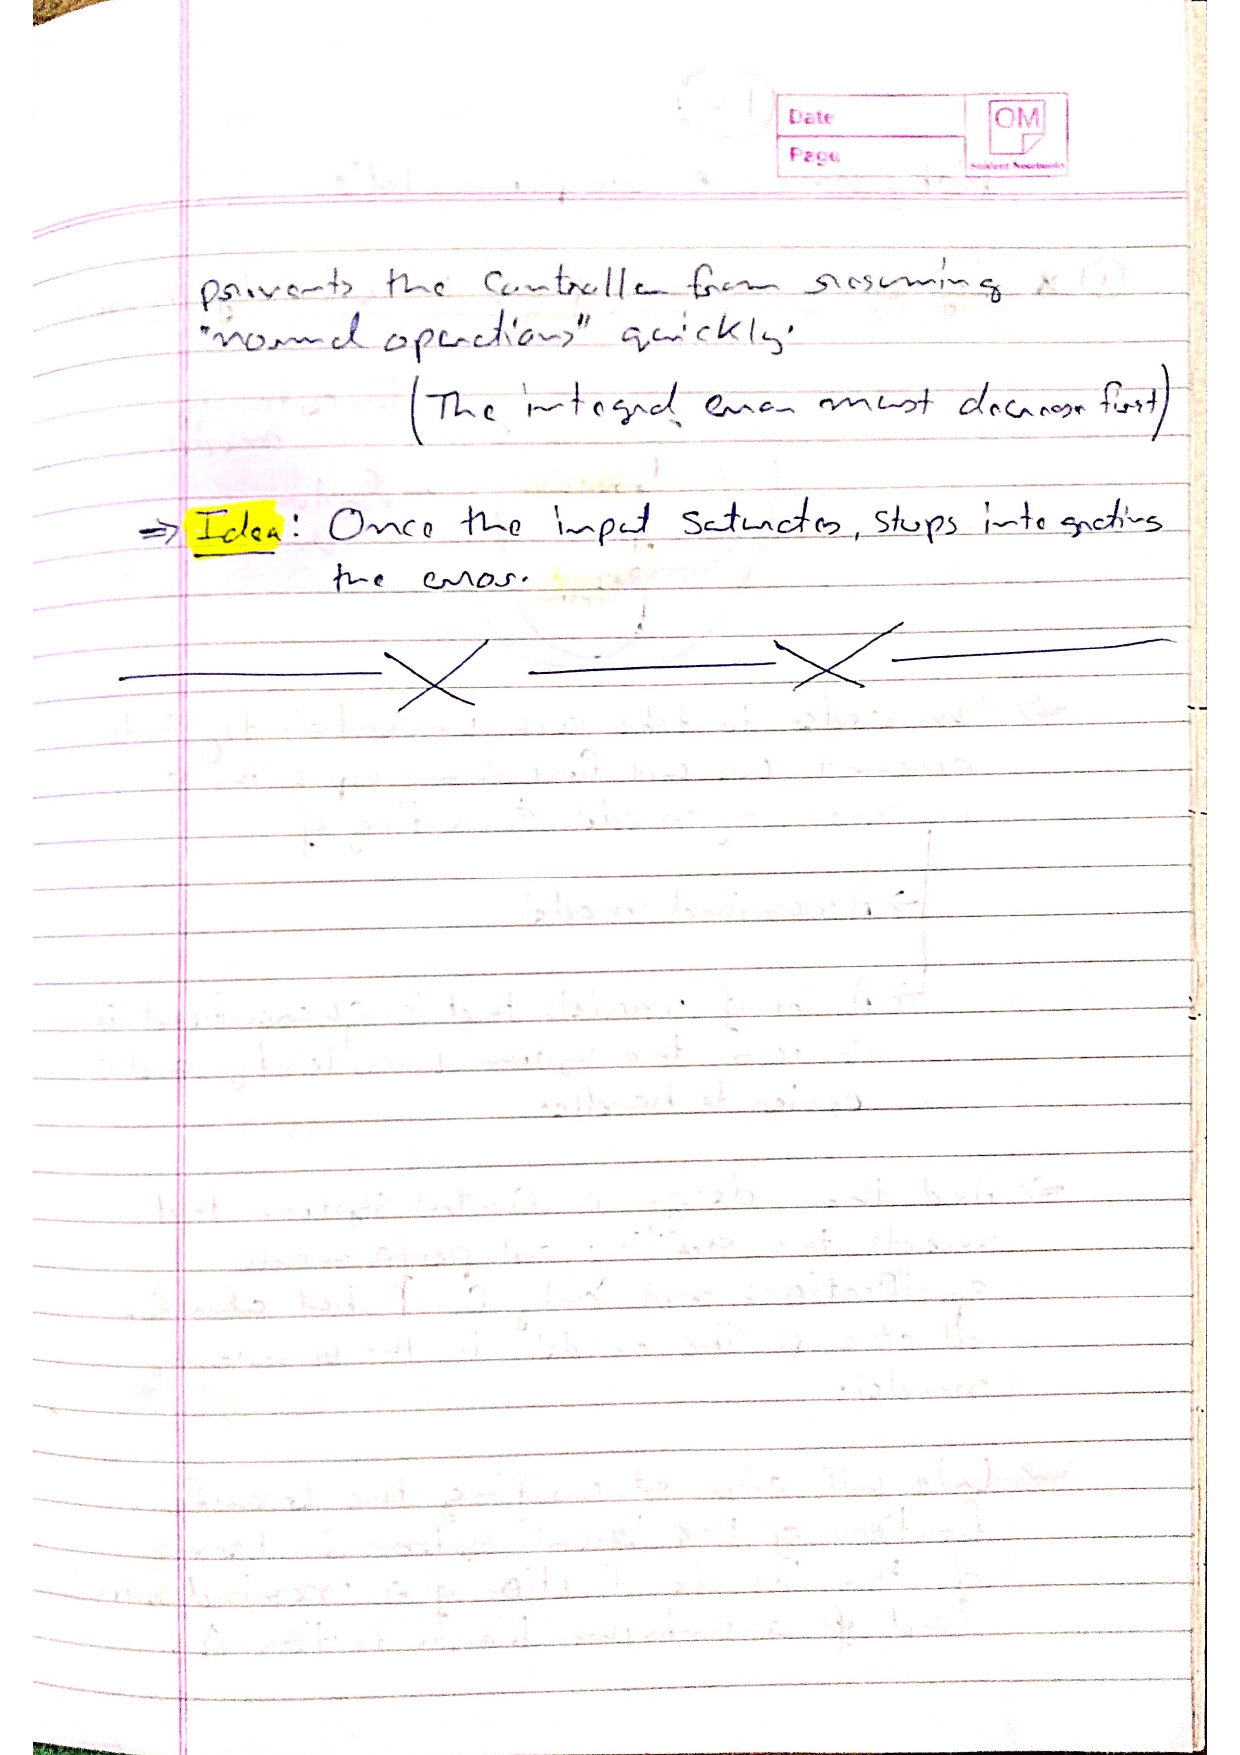 Date
OM
Page
Student Notebooks
prevents the Controller from resuming
"normal operations" quickly.
(The integral error must decrease first)
⇒ Idea: Once the input saturates, stops integrating
the error.